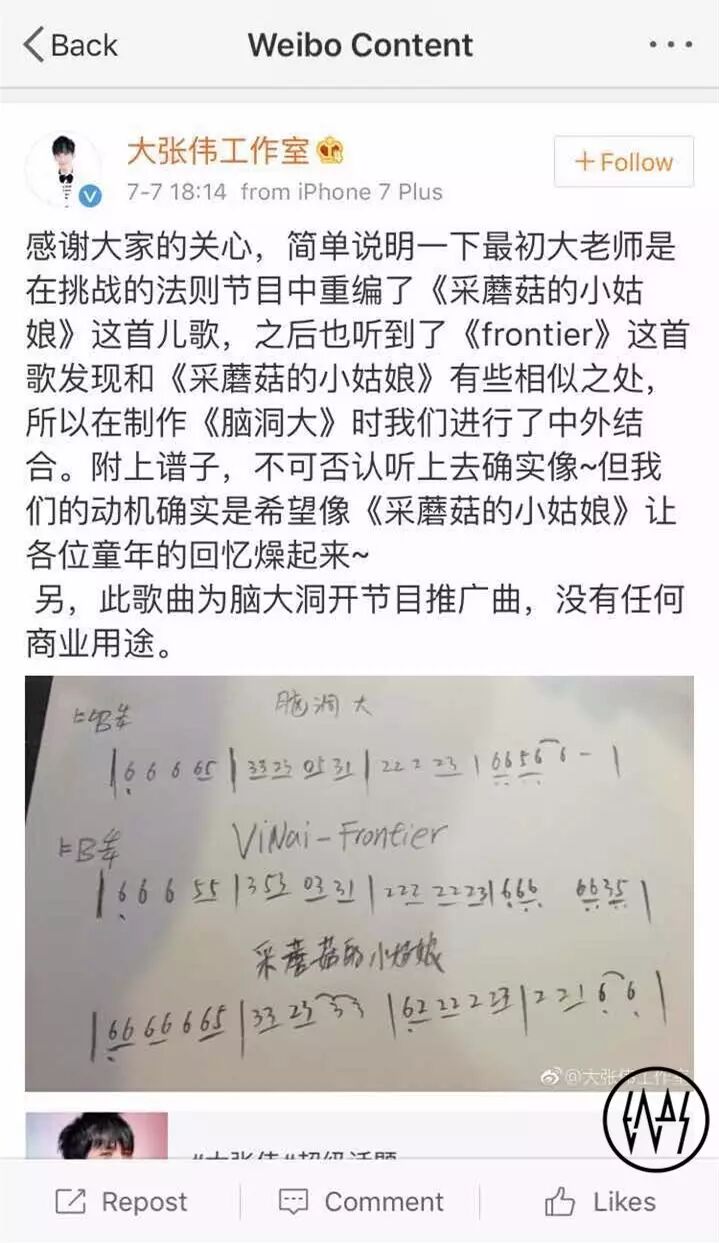 Back
Weibo Content
大张伟工作室
+Follow
7-7 18:14 from iPhone 7 Plus
感谢大家的关心，简单说明一下最初大老师是
在挑战的法则节目中重编了《采蘑菇的小姑
娘》这首儿歌，之后也听到了《frontier》这首
歌发现和《采蘑菇的小姑娘》有些相似之处，
所以在制作《脑洞大》时我们进行了中外结
合。附上谱子，不可否认听上去确实像~但我
们的动机确实是希望像《采蘑菇的小姑娘》让
各位童年的回忆燥起来~
另，此歌曲为脑大洞开节目推广曲，没有任何
商业用途。
脑洞大
|6 6 6 65|33 23 05 31|22 2 23|6656 6 - |
ViNai-Frontier
|6 6 6 55|353 03 31|222 2223|666 6635|
采蘑菇的小姑娘
|66 66 6 65|33 23 33|62 22 2 23|2 21 6 6|
@大张伟工作室
#大张伟#超级话题
Repost
Comment
Likes